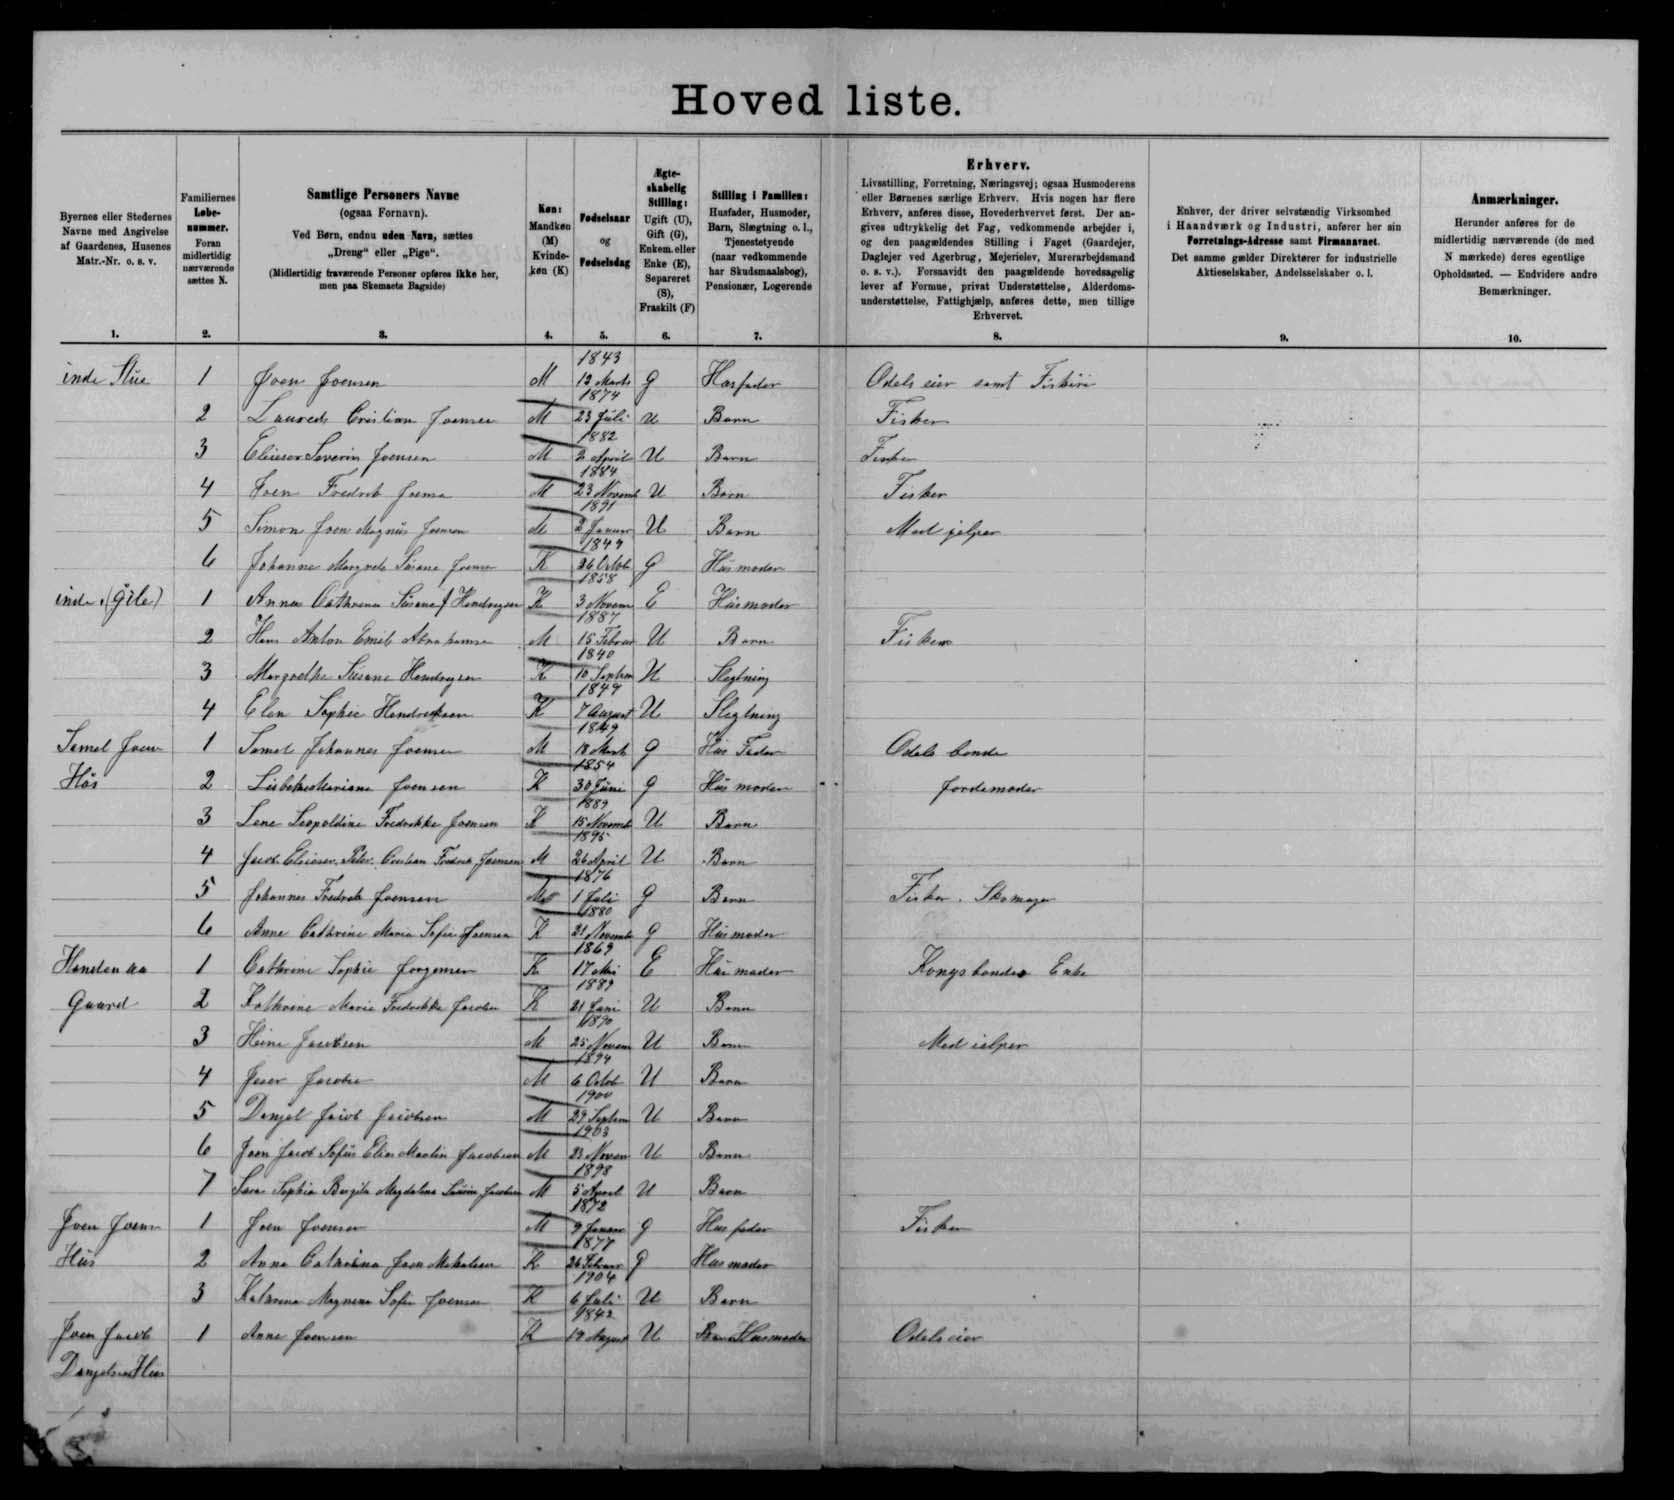 Hovedliste.
Byernes eller Stedernes Navne med Angivelse af Gaardenes, Husenes Matr.-Nr. o. s. v.
Familiernes Løbe-nummer. Foran midlertidig nærværende sættes N.
Samtlige Personers Navne (ogsaa Fornavn). Ved Børn, endnu uden Navn, sættes „Dreng“ eller „Pige“. (Midlertidig fraværende Personer opføres ikke her, men paa Skemaets Bagside)
Køn: Mandkøn (M) Kvinde-køn (K)
Fødselsaar og Fødselsdag
Ægte-skabelig Stilling: Ugift (U), Gift (G), Enkem. eller Enke (E), Separeret (S), Fraskilt (F)
Stilling i Familien: Husfader, Husmoder, Barn, Slægtning o. l., Tjenestetyende (naar vedkommende har Skudsmaalsbog), Pensionær, Logerende
Erhverv. Livsstilling, Forretning, Næringsvej; ogsaa Husmoderens eller Børnenes særlige Erhverv. Hvis nogen har flere Erhverv, anføres disse, Hovederhvervet først. Der an-gives udtrykkelig det Fag, vedkommende arbejder i, og den paagældendes Stilling i Faget (Gaardejer, Daglejer ved Agerbrug, Mejerielev, Murerarbejdsmand o. s. v.). Forsaavidt den paagældende hovedsagelig lever af Formue, privat Understøttelse, Alderdoms-understøttelse, Fattighjælp, anføres dette, men tillige Erhvervet.
Enhver, der driver selvstændig Virksomhed i Haandværk og Industri, anfører her sin Forretnings-Adresse samt Firmanavnet. Det samme gælder Direktører for industrielle Aktieselskaber, Andelsselskaber o. l.
Anmærkninger. Herunder anføres for de midlertidig nærværende (de med N mærkede) deres egentlige Opholdssted. — Endvidere andre Bemærkninger.
1. 2. 3. 4. 5. 6. 7. 8. 9. 10.
inde Stue 1 Joen Joensen M 1843 12 Marts G Husfader Odels eier samt Fiskeri
2 Laureds Cristian Joensen M 1874 23 Juli U Barn Fisker
3 Elieser Severin Joensen M 1882 2 April U Barn Fisker
4 Joen Fredrik Joensen M 1884 23 Novemb U Barn Fisker
5 Simon Joen Magnus Joensen M 1891 2 Januar U Barn Med jelper
6 Johanne Margrete Susane Joensen K 1849 26 Octob G Husmoder
inde (Gile) 1 Anna Cathrina Susane J Hendrygsen K 1858 3 Novem E Husmoder
2 Hans Anton Emil Abrahamsen M 1887 15 Februar U Barn Fisker
3 Margrethe Susane Hendrygsen K 1840 10 Septem U Slegtning
4 Elen Sophie Hendreksen K 1849 7 August U Slegtning
Samel Joen 1 Samel Johannes Joensen M 1849 18 Marts G Hus Fader Odels bonde
Hus 2 Lisbeth Mariane Joensen K 1854 30 Juni G Hus moder Jordemoder
3 Lene Leopoldine Fredrikke Joensen K 1889 15 Novemb U Barn
4 Jacob Elieser Peter Cristian Fredrik Joensen M 1895 26 April U Barn
5 Johannes Fredrik Joensen M 1876 1 Juli G Barn Fisker. Skomager
6 Anne Cathrine Maria Sofie Joensen K 1880 21 Novemb G Husmoder
1 Cathrine Sophie Jørgensen K 1869 17 Mai E Husmoder Kongsbondes Enke
Gaard 2 Kathrine Marie Fredrikke Jacobsen K 1889 21 Juni U Barn
3 Heine Jacobsen M 1890 25 Novem U Barn Med ielper
4 Jacobsen M 1894 6 Octob U Barn
5 Danjel Jacob Jacobsen M 1900 29 Septem U Barn
6 Joen Jacob Sofus Elias Martin Jacobsen M 1903 23 Novem U Barn
7 Sara Sophia Bergita Magdalena Jacobsen M 1898 5 April U Barn
Joen Joens 1 Joen Joensen M 1872 9 Januar G Husfader Fisker
Hus 2 Anna Cathrina Joen Mikkelsen K 1877 26 Februar G Husmoder
3 Kathrina Magnena Sofie Joensen K 1904 6 Juli U Barn
Joen Jacob 1 Anne Joensen K 1842 19 August U Husmoder Odels eier
Danjelsens Hus